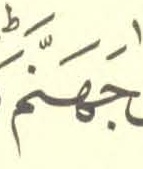 جَهَنَّمَ